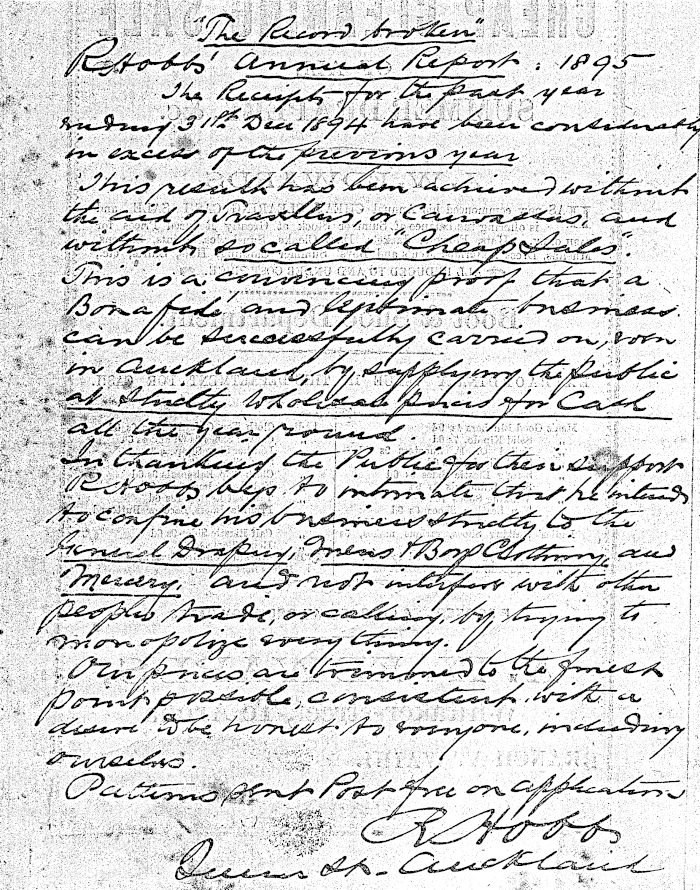 "The Record broken"
R Hobbs' Annual Report. 1895
The Receipts for the past year
ending 31st Dec 1894 have been considerably
in excess of the previous year
This result has been achieved without
the aid of Travellers, or Canvassers, and
without so called "Cheap Sales".
This is a convincing proof that a
Bonafide, and legitimate business
can be successfully carried on, even
in Auckland, by supplying the public
at Strictly Wholesale prices for Cash
all the year round.
In thanking the Public for their support
R Hobbs begs to intimate that he intends
to confine his business strictly to the
General Drapery, Mens & Boys Clothing, and
Mercery. and not interfere with other
peoples trade, or calling, by trying to
monopolize everything.
Our prices are trimmed to the finest
point possible, consistent with a
desire to be honest to everyone, including
ourselves.
Patterns sent Post free on application
R Hobbs
Queen St - Auckland